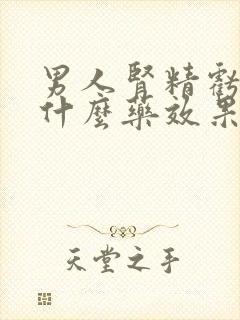 男人腎精虧
什麼藥效果
天堂之手